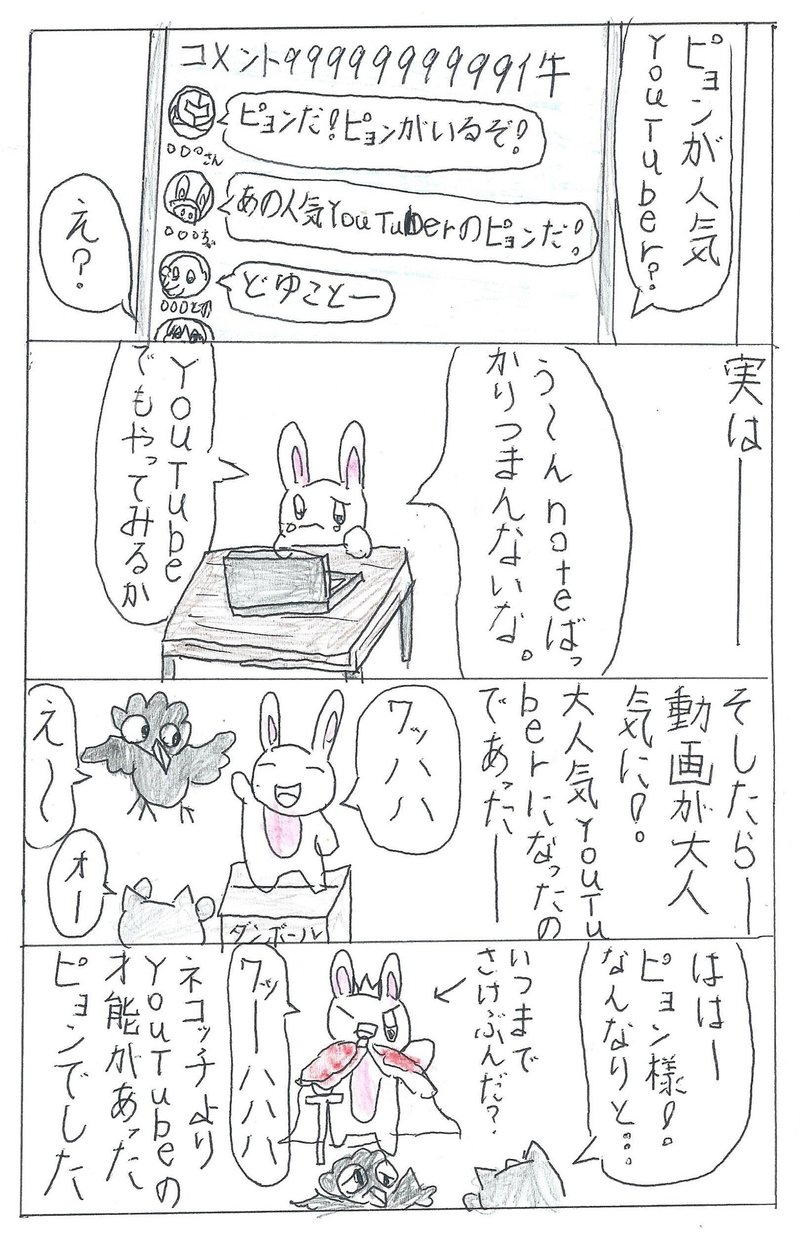 ピョンが人気
YouTuber?
コメント99999999999件
ピョンだ!ピョンがいるぞ!
○○○さん
あの人気YouTuberのピョンだ!
どゆことー
え?
実は―
う〜んnoteばっ
かりつまんないな。
YouTube
でもやってみるか
そしたらー
動画が大人
気に!
大人気YouTu
berになったの
であったー
ワッハハ
え〜
オー
ダンボール
ははー
ピョン様!
なんなりと…
いつまで
さけぶんだ?
ワッーハハハ
ネコッチより
YouTubeの
才能があった
ピョンでした